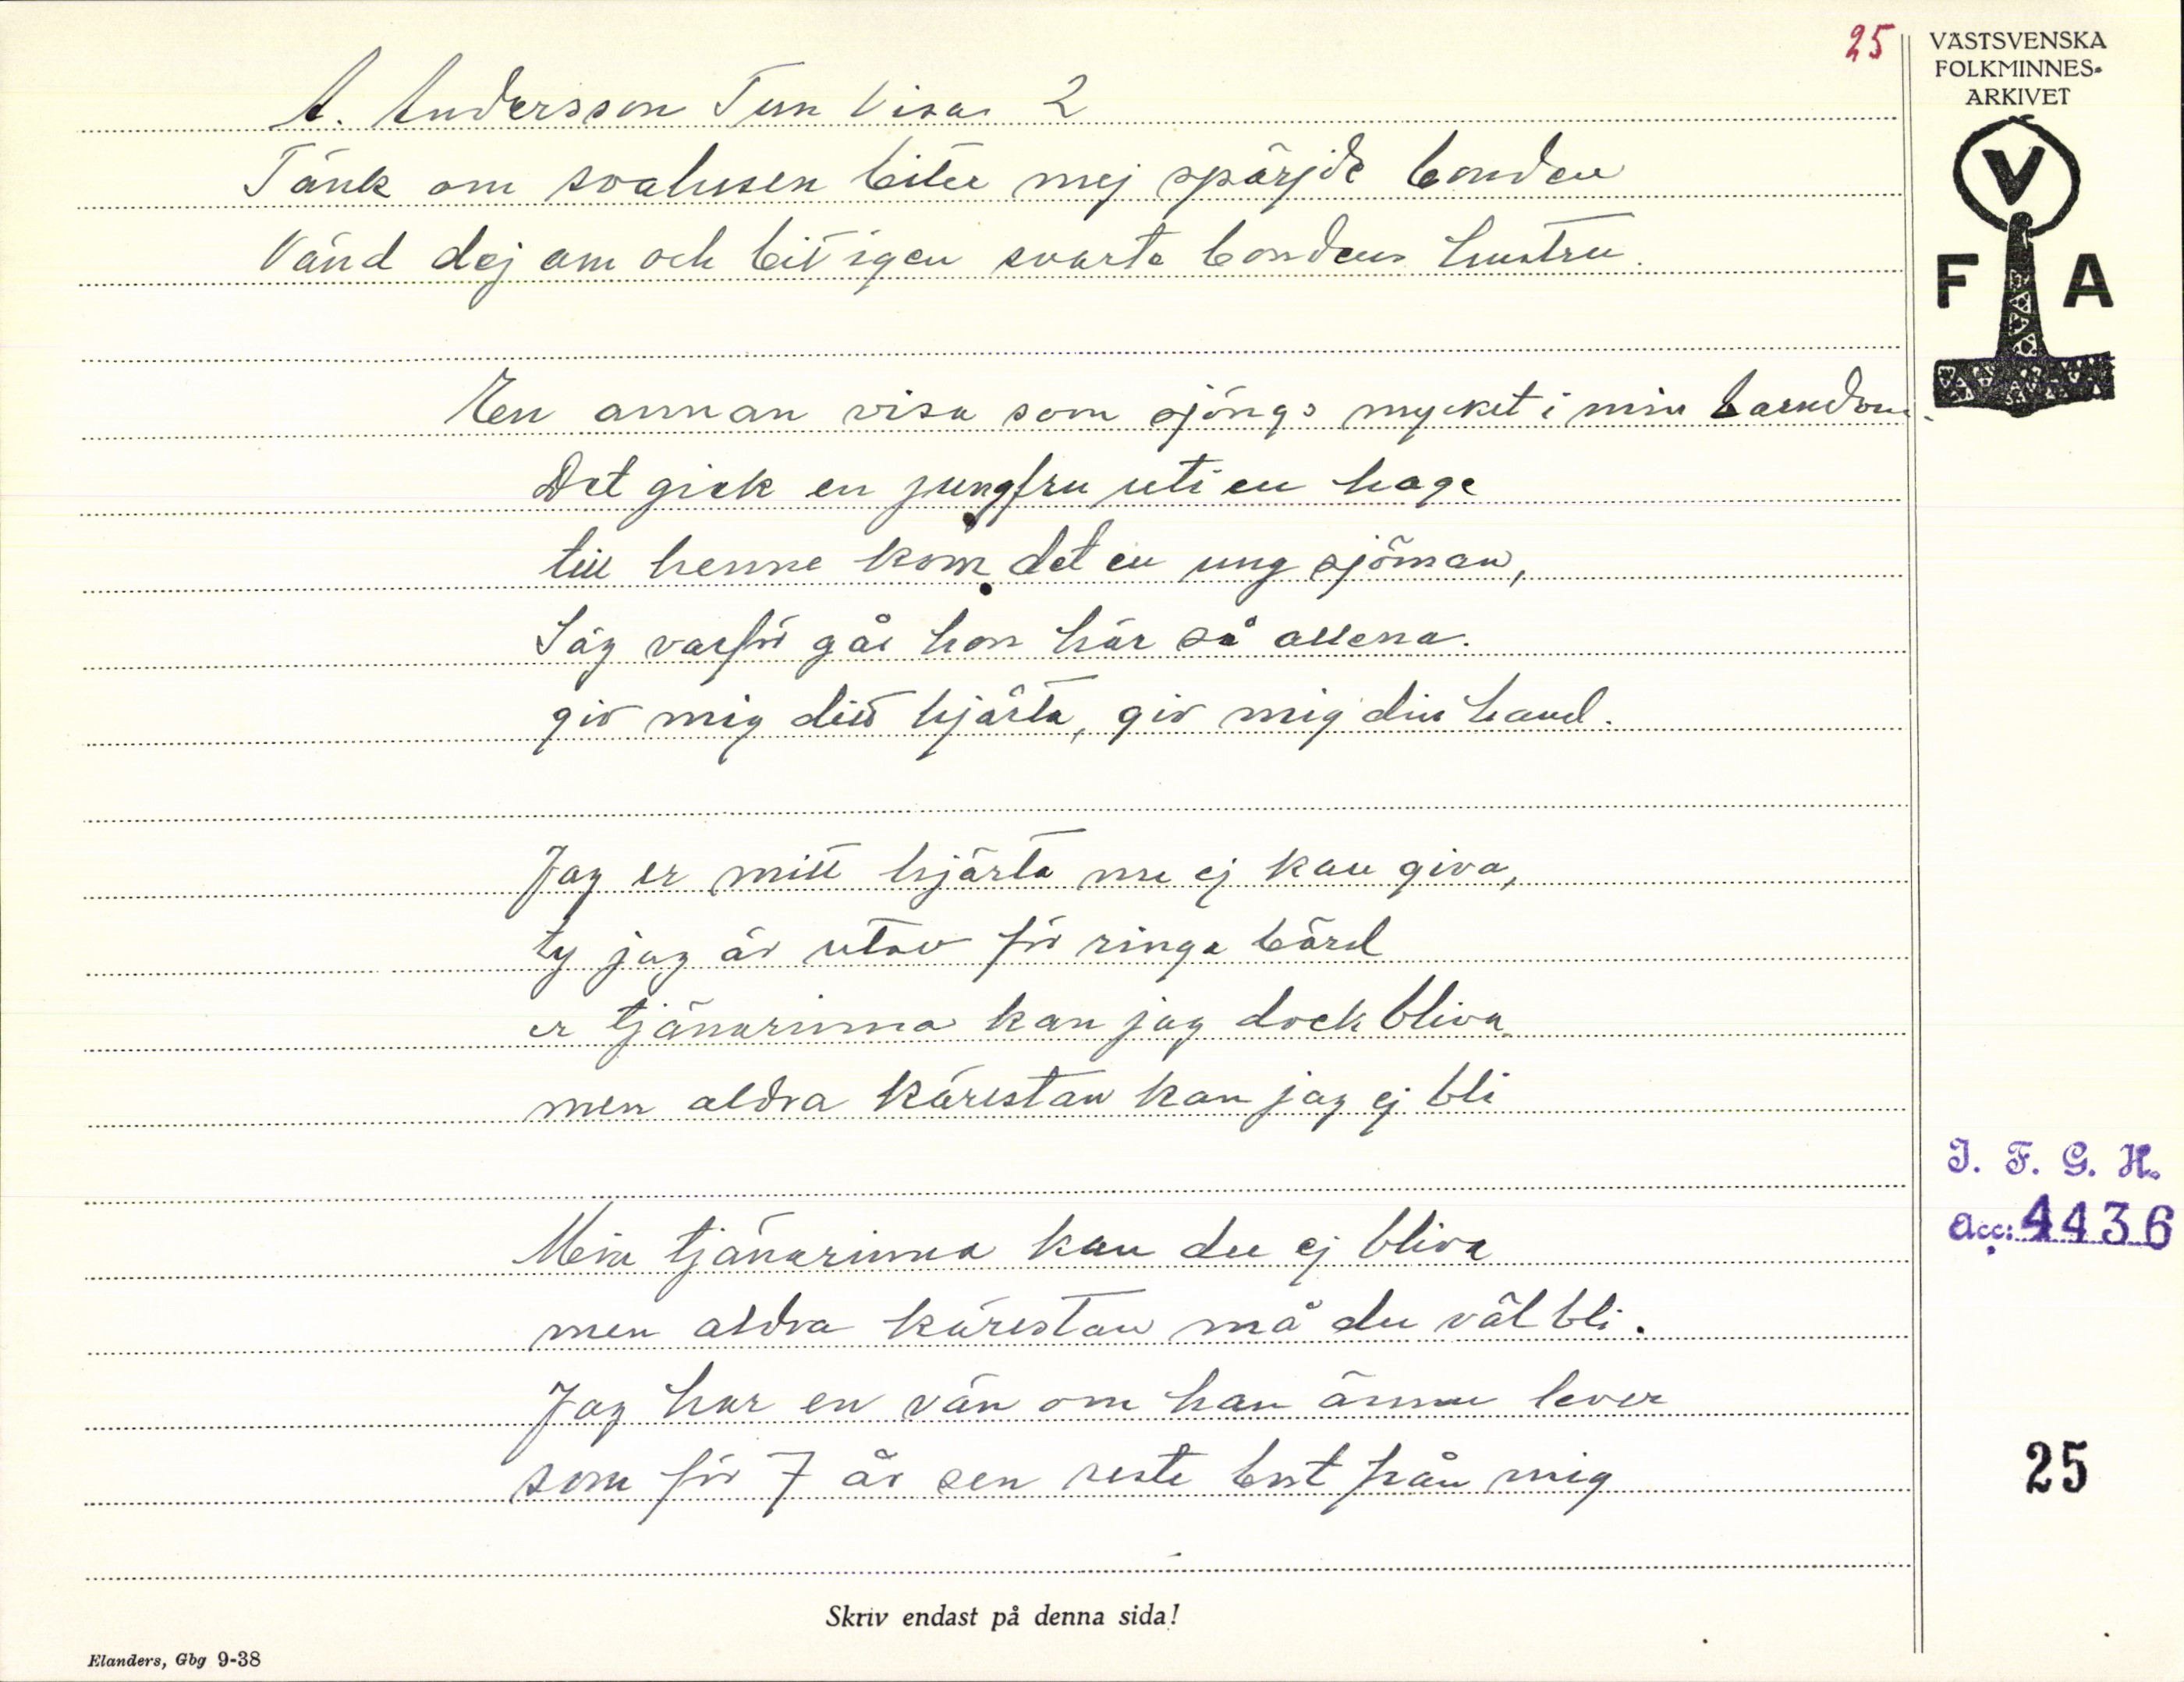 25
VÄSTSVENSKA
FOLKMINNES-
ARKIVET
V
F A
A. Andersson Tun Visa 2
Tänk om svalusen biter mej spärjde bonden
Vänd dej om och bit igen svarte bondens hustru.
En annan visa som sjöngs mycket i min barndom.
Det gick en jungfru uti en hage
till henne kom det en ung sjöman,
Säg varför går hon här så allena.
giv mig ditt hjärta, giv mig din hand.
Jag er mitt hjärta nu ej kan giva,
ty jag är utav för ringa börd
er tjänarinna kan jag dock bliva
men aldra kärestan kan jag ej bli
Min tjänarinna kan du ej bliva
men aldra kärestan må du väl bli.
Jag har en vän om han ännu lever
som för 7 år sen reste bort från mig
I. F. G. H.
Acc: 4436
25
Skriv endast på denna sida!
Elanders, Gbg 9-38